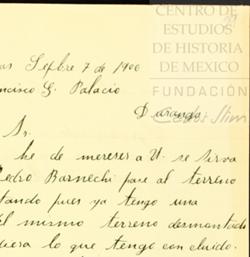 CENTRO DE
ESTUDIOS
DE HISTORIA
DE MEXICO
FUNDACIÓN
Carlos Slim
as Sepbre 7 de 1900
ncisco G. Palacio
Durango
Sr.
he de mereser a U. se sirva
edro Barnechi pase al terreno
tando pues ya tengo una
el mismo terreno desmontado
uera lo que tengo con cluido.